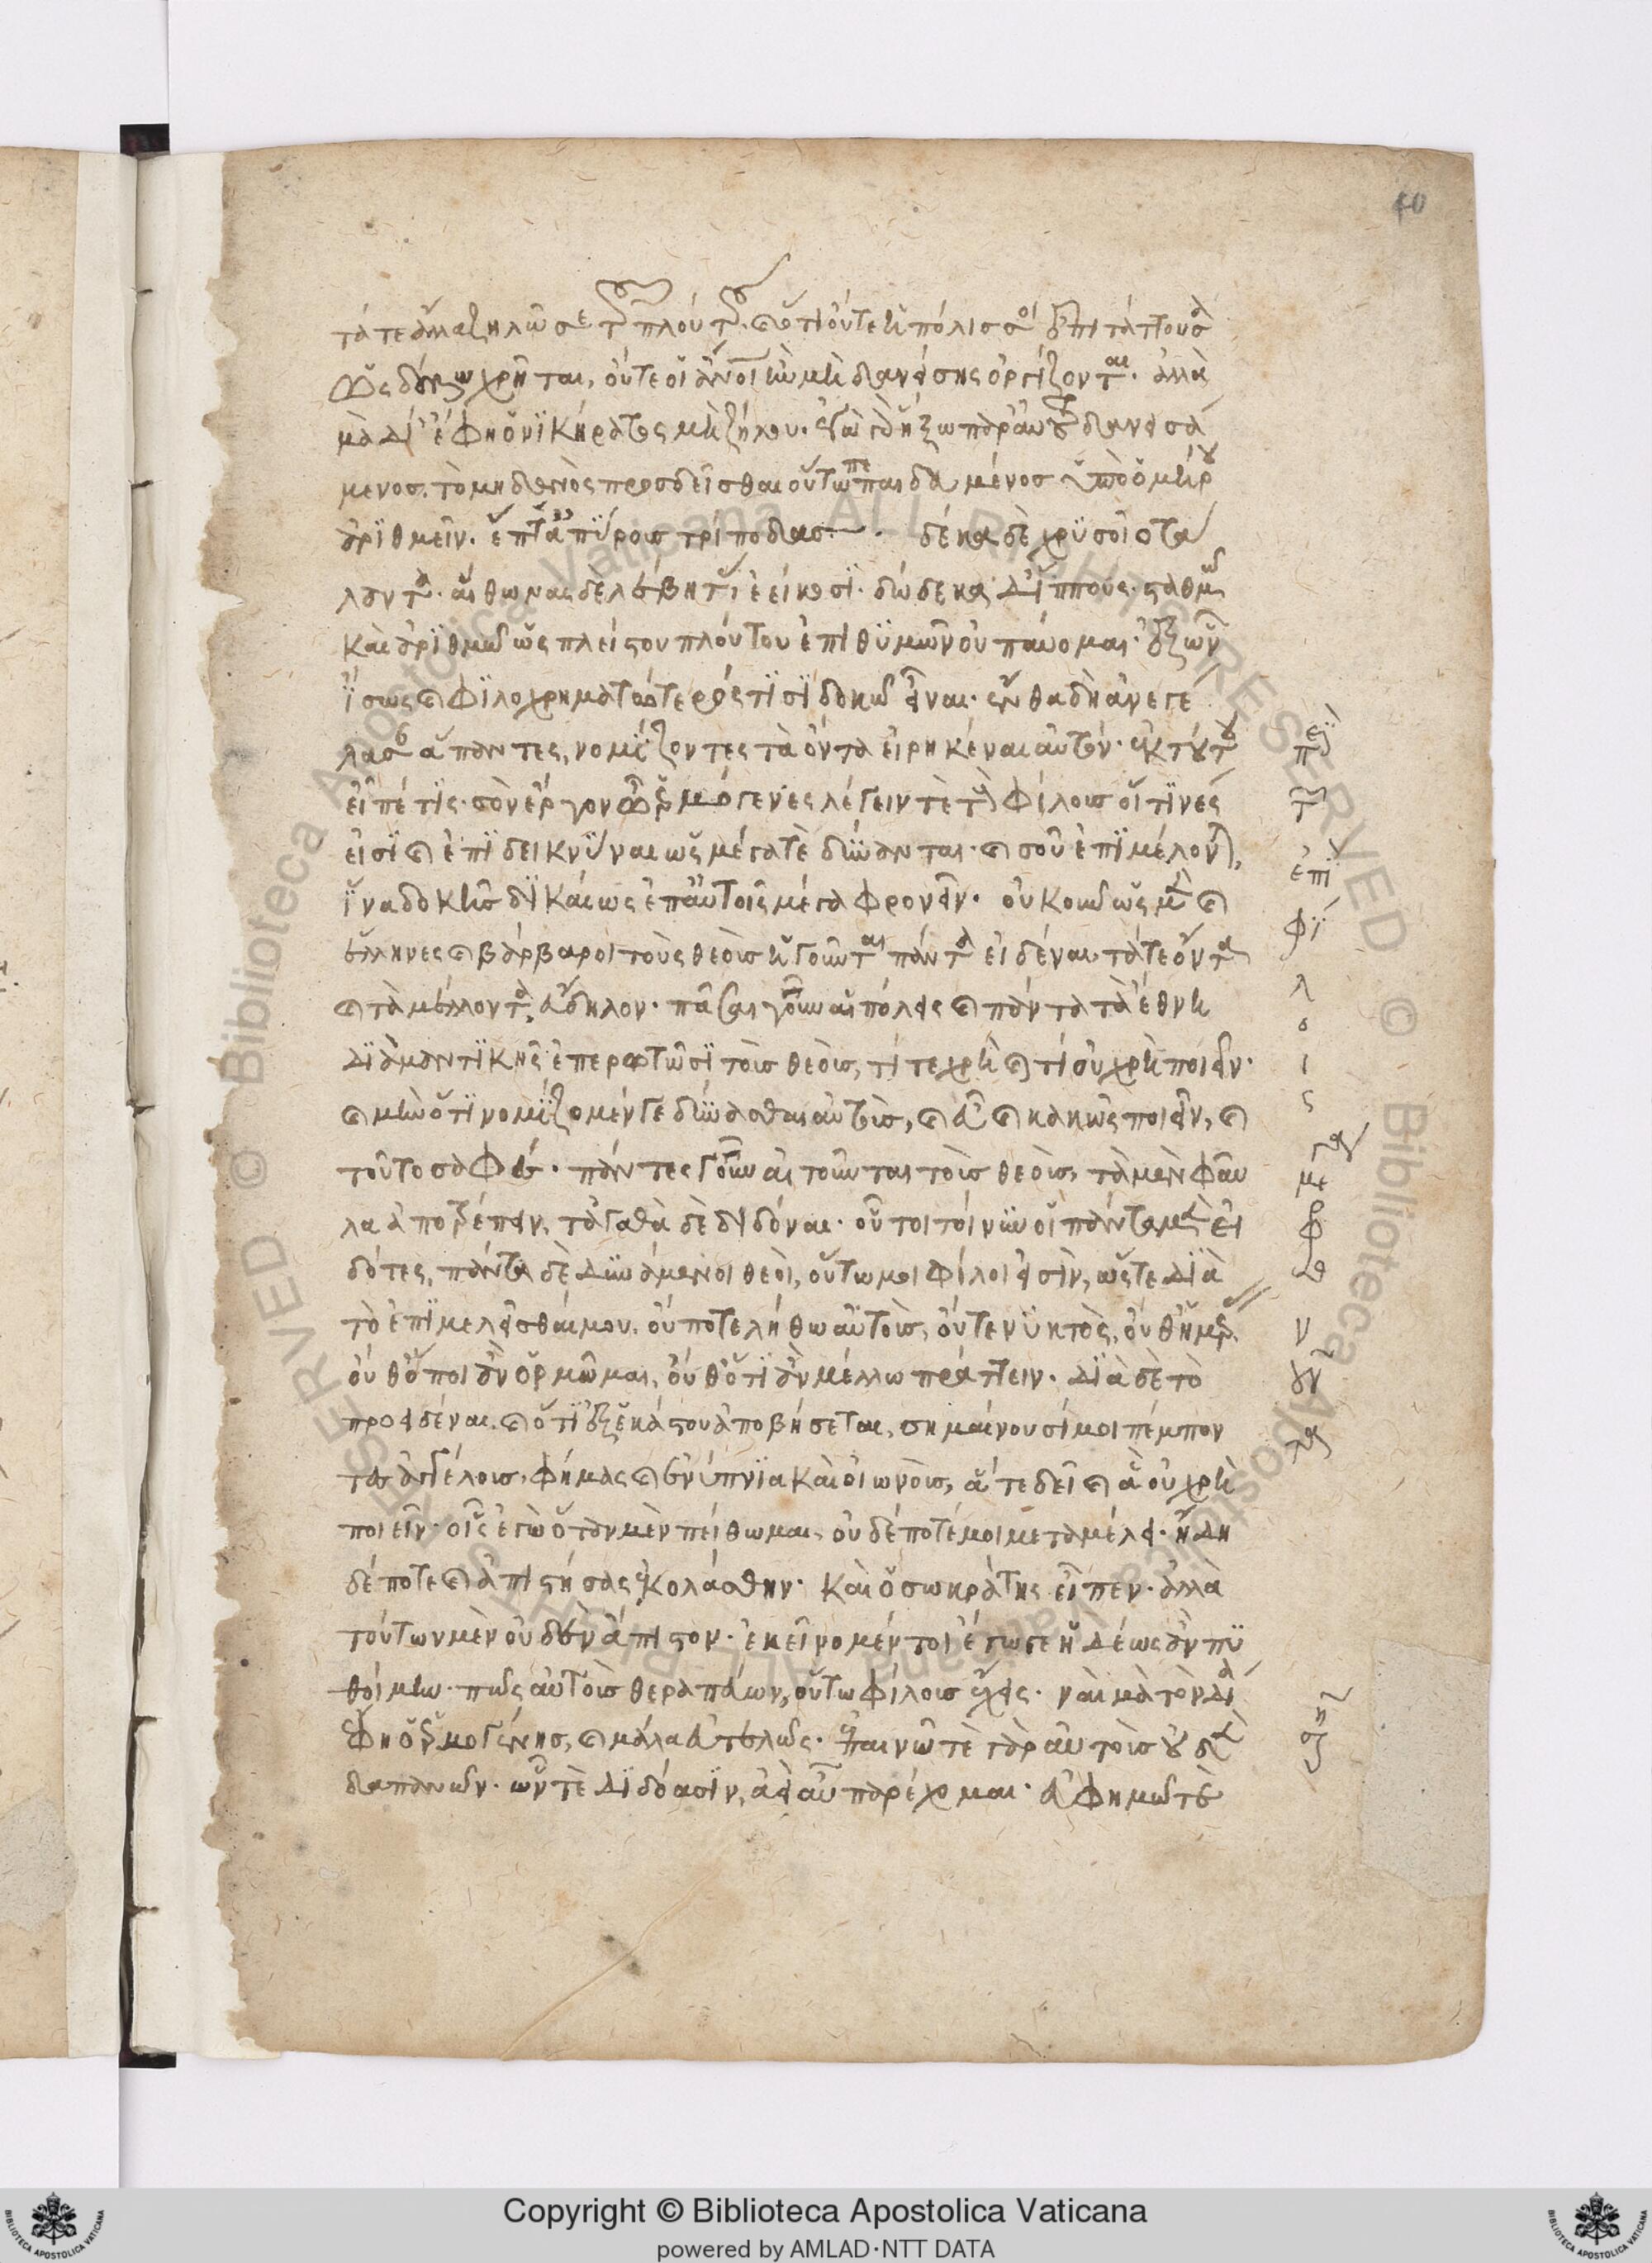 40
τά τε ἄλλα ζηλῶ σε τοῦ πλούτου. καὶ ὅτι οὔτε ἡ πόλις σοι ἐπιτάττουσα
ὡς δούλω χρῆται, οὔτε οἱ ἄνθρωποι ἢν μὴ δανείσης ὀργίζονται. ἀλλὰ
μὰ Δί' ἔφη ὁ νικήρατος μὴ ζήλου. ἐγὼ γὰρ ἥξω παρ' αὐτοῦ δανεισά
μενος. τὸ μηδενὸς προσδεῖσθαι οὕτω πεπαιδευμένος ὑπὸ ὁμήρου
ἀριθμεῖν. ἑπτ' ἀπύρους τρίποδας. δέκα δὲ χρυσοῖο τα
λαντα. αἴθωνας δὲ λέβητας ἐείκοσι. δώδεκα δ' ἵππους. σταθμῶ
καὶ ἀριθμῶ ὡς πλείστου πλούτου ἐπιθυμῶν οὐ παύομαι. ἐξ ὧν
ἴσως καὶ φιλοχρηματώτερός τισι δοκῶ εἶναι. ἔνθα δὴ ἀνεγέ
λασαν ἅπαντες, νομίζοντες τὰ ὄντα εἰρηκέναι αὐτόν. ἐκ τούτου
εἶπέ τις. σὸν ἔργον ὦ ἑρμόγενες λέγειν τε τοὺς φίλους οἵτινές
εἰσι καὶ ἐπιδεικνύναι ὡς μέγα τε δύνανται. καὶ σοῦ ἐπιμέλονται,
ἵνα δοκῆς δικαίως ἐπ' αὐτοῖς μέγα φρονεῖν. οὐκοῦν ὡς μὲν καὶ
ἕλληνες καὶ βάρβαροι τοὺς θεοὺς ἡγοῦνται πάντα εἰδέναι τά τε ὄντα
καὶ τὰ μέλλοντα, εὔδηλον. πᾶσαι γοῦν αἱ πόλεις καὶ πάντα τὰ ἔθνη
διὰ μαντικῆς ἐπερωτῶσι τοὺς θεοὺς, τί τε χρὴ καὶ τί οὐ χρὴ ποιεῖν.
καὶ μὴν ὅτι νομίζομέν γε δύνασθαι αὐτοὺς, καὶ εὖ καὶ κακῶς ποιεῖν, καὶ
τοῦτο σαφές. πάντες γοῦν αἰτοῦνται τοὺς θεοὺς, τὰ μὲν φαῦ
λα ἀποτρέπειν, τἀγαθὰ δὲ διδόναι. οὗτοι τοίνυν οἱ πάντα μὲν εἰ
δότες, πάντα δὲ δυνάμενοι θεοὶ, οὕτω μοι φίλοι εἰσὶν, ὥστε διὰ
τὸ ἐπιμελεῖσθαί μου, οὔποτε λήθω αὐτοὺς, οὔτε νυκτὸς, οὔθ' ἡμέρας
οὔθ' ὅποι ἂν ὁρμῶμαι, οὔθ' ὅτι ἂν μέλλω πράττειν. διὰ δὲ τὸ
προειδέναι καὶ ὅτι ἐξ ἑκάστου ἀποβήσεται, σημαίνουσί μοι πέμπον
τες ἀγγέλους, φήμας καὶ ἐνύπνια καὶ οἰωνοὺς, ἅ τε δεῖ καὶ ἃ οὐ χρὴ
ποιεῖν. οἷς ἐγὼ ὅταν μὲν πείθωμαι, οὐδέποτέ μοι μεταμέλει. ἤδη
δέ ποτε καὶ ἀπιστήσας ἐκολάσθην. καὶ ὁ σωκράτης εἶπεν. ἀλλὰ
τούτων μὲν οὐδὲν ἄπιστον. ἐκεῖνο μέντοι ἔγωγε ἡδέως ἂν πυ
θοίμην. πῶς αὐτοὺς θεραπεύων, οὕτω φίλους ἔχεις. ναὶ μὰ τὸν δί'
ἔφη ὁ ἑρμογένης, καὶ μάλα εὐτελῶς. ἐπαινῶ τε γὰρ αὐτοὺς οὐδὲν
δαπανῶν. ὧν τε διδόασιν, ἀεὶ αὖ παρέχομαι. εὐφημῶ τε
περὶ
τῶν
ἐπὶ
φί
λ
ο
ι
ς
μέγα
φρο
ν
ούν
των
ση